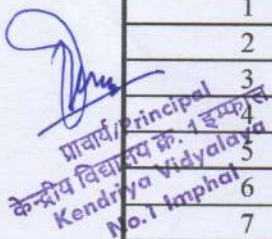 1
2
3
4
5
6
7
प्राचार्य/Principal
केन्द्रीय विद्यालय क्र. 1 इम्फाल
Kendriya Vidyalaya
No.1 Imphal